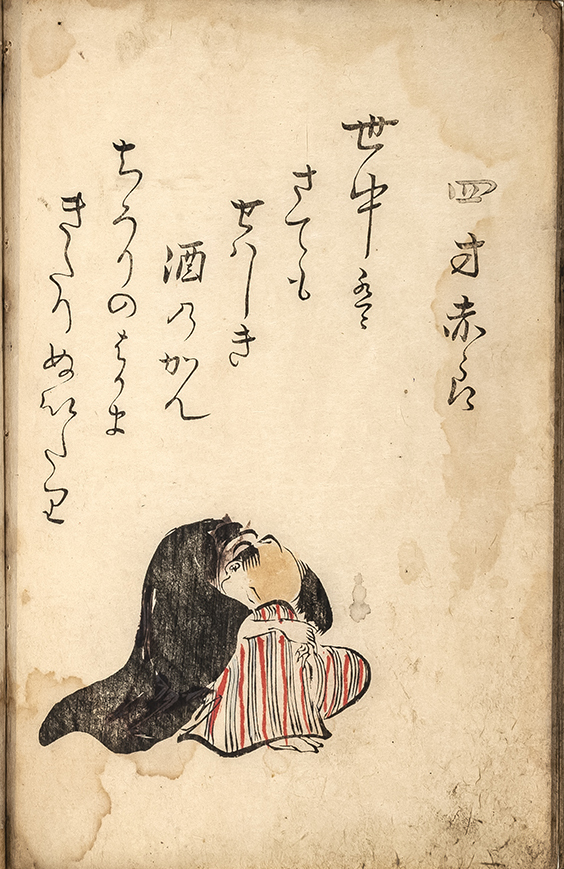 四方赤良
世中は
さても
せはしき
酒乃かん
ちろりのはかま
きたりぬいたり